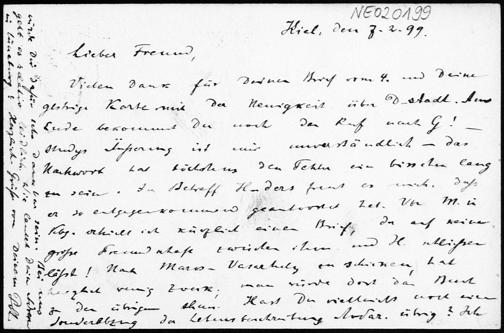 NE020199
Kiel, den 7.2.99.
Lieber Freund,
Vielen Dank für Deinen Brief vom 4. und Deine
gestrige Karte mit der Neuigkeit über D-stadt. Am
Ende bekommst Du noch den Ruf nach G! –
Studys ist mir unverständlich – das
Nachwort hat höchstens den Fehler ein bisschen lang
zu sein. In Betreff freut es mich, dass
er so entgegenkommend geantwortet hat. Von M. in
Kbg. erhielt ich kürzlich einen Brief, der auf keine
große Freundschaft zwischen ihm und H. schließen
lässt! Nach Maros-Vasarhely zu schicken, hat
herzlich wenig Zweck; man würde dort das Buch
zu den übrigen thun. Hast Du vielleicht noch einen
Sonderabzug der Lebensbeschreibung übrig? Ich
würde Dir dafür sehr dankbar sein. Bei uns
geht es
in Lüneburg? Herzliche Grüße von Deinem